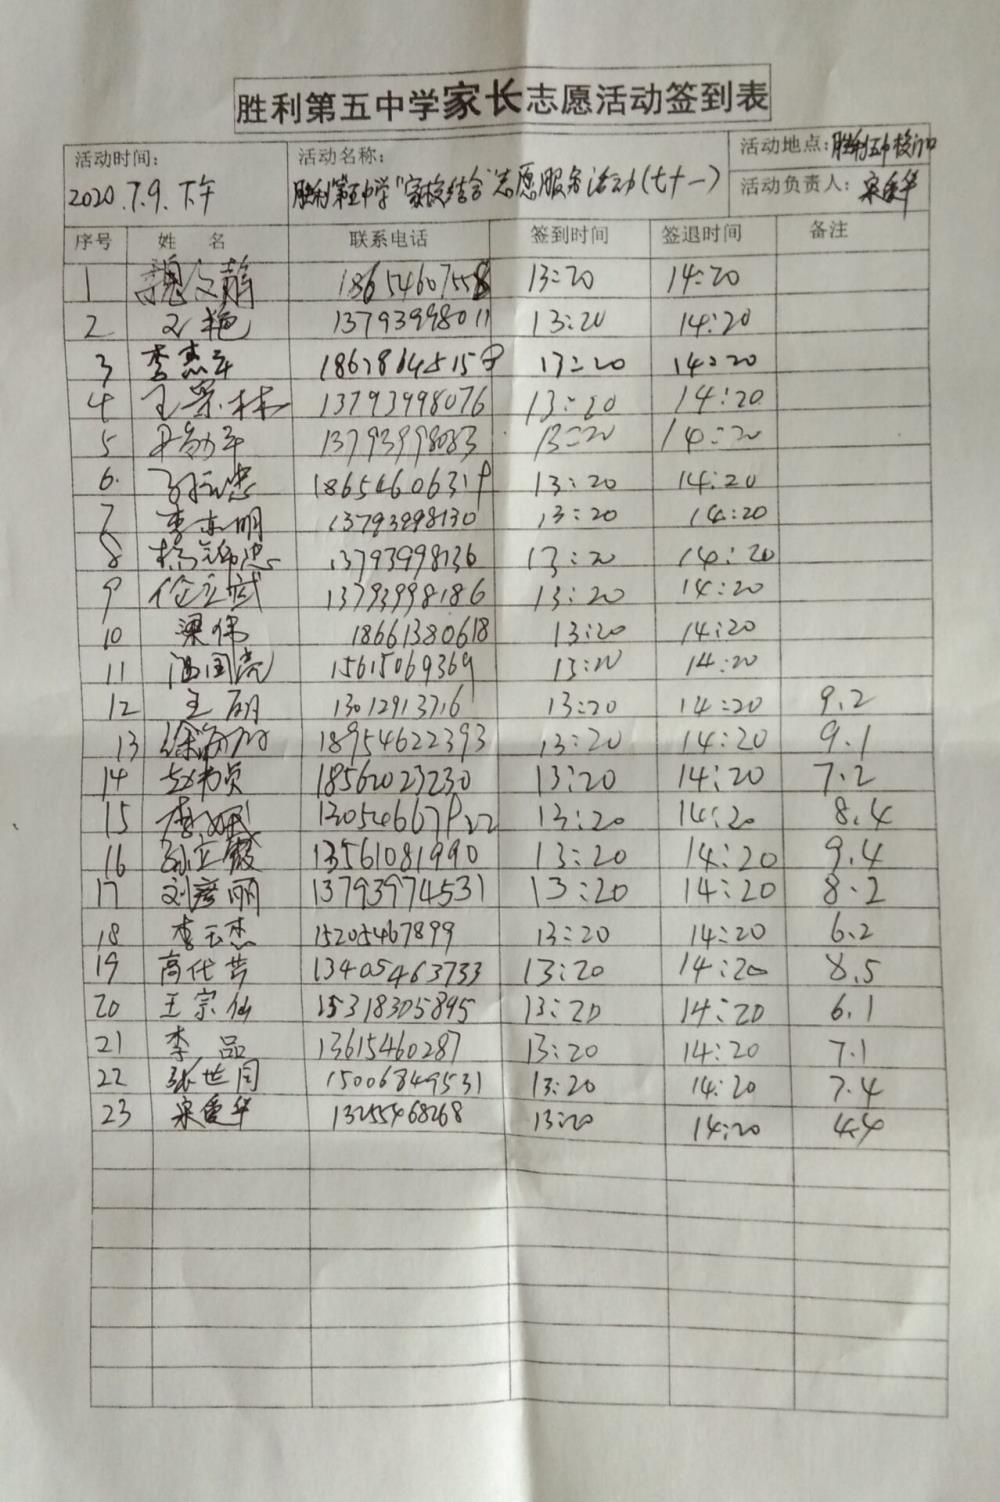 胜利第五中学家长志愿活动签到表
活动时间: 活动名称: 活动地点:胜利五中校门口
2020.7.9.下午 胜利第五中学"家校结合"志愿服务活动(七十一) 活动负责人:宋爱华
序号 姓名 联系电话 签到时间 签退时间 备注
1 魏文静 18654607558 13:20 14:20
2 王艳 13793998011 13:20 14:20
3 李杰军 13:20 14:20
4 王荣林 13793998076 13:20 14:20
5 13793998083 13:20 14:20
6. 18654606319 13:20 14:20
7 李志明 13793998130 13:20 14:20
8 杨锦忠 13793998136 13:20 14:20
9 任立武 13793998186 13:20 14:20
10 梁伟 18661380618 13:20 14:20
11 国亮 15615069369 13:20 14:20
12 王丽 13012913716 13:20 14:20 9.2
13 徐 18954622393 13:20 14:20 9.1
14 赵书贞 18562023230 13:20 14:20 7.2
15 13054667922 13:20 14:20 8.4
16 孙立霞 13561081990 13:20 14:20 9.4
17 刘彦丽 13793974531 13:20 14:20 8.2
18 李玉杰 15205467899 13:20 14:20 6.2
19 高代芳 13405463733 13:20 14:20 8.5
20 王宗仙 15318305895 13:20 14:20 6.1
21 李品 13615460287 13:20 14:20 7.1
22 张世同 15006849531 13:20 14:20 7.4
23 宋爱华 13255468268 13:20 14:20 4.4